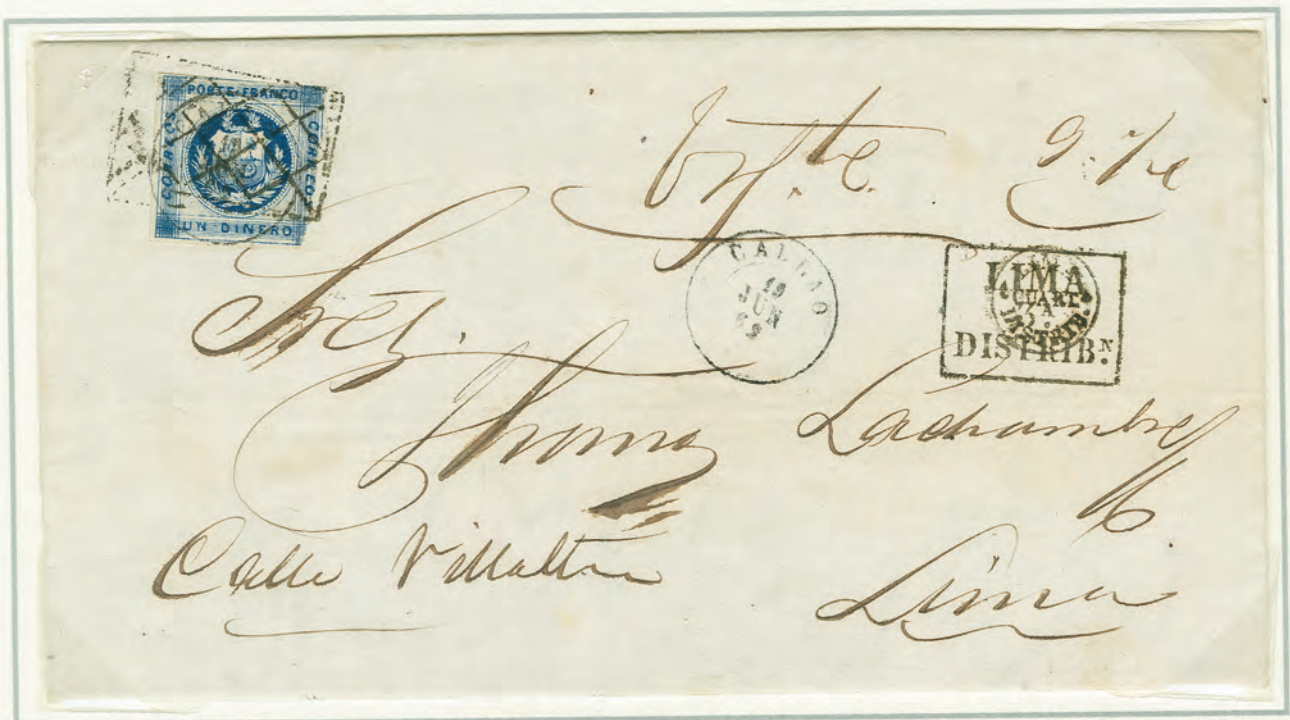 PORTE FRANCO
CORREO
CORREO
UN DINERO
CALLAO
19
JUN
69
LIMA
CUART
A
DISTRIB.
DISTRIB.N
Sres.
Thomas Lachambre
Calle Villalta
Lima